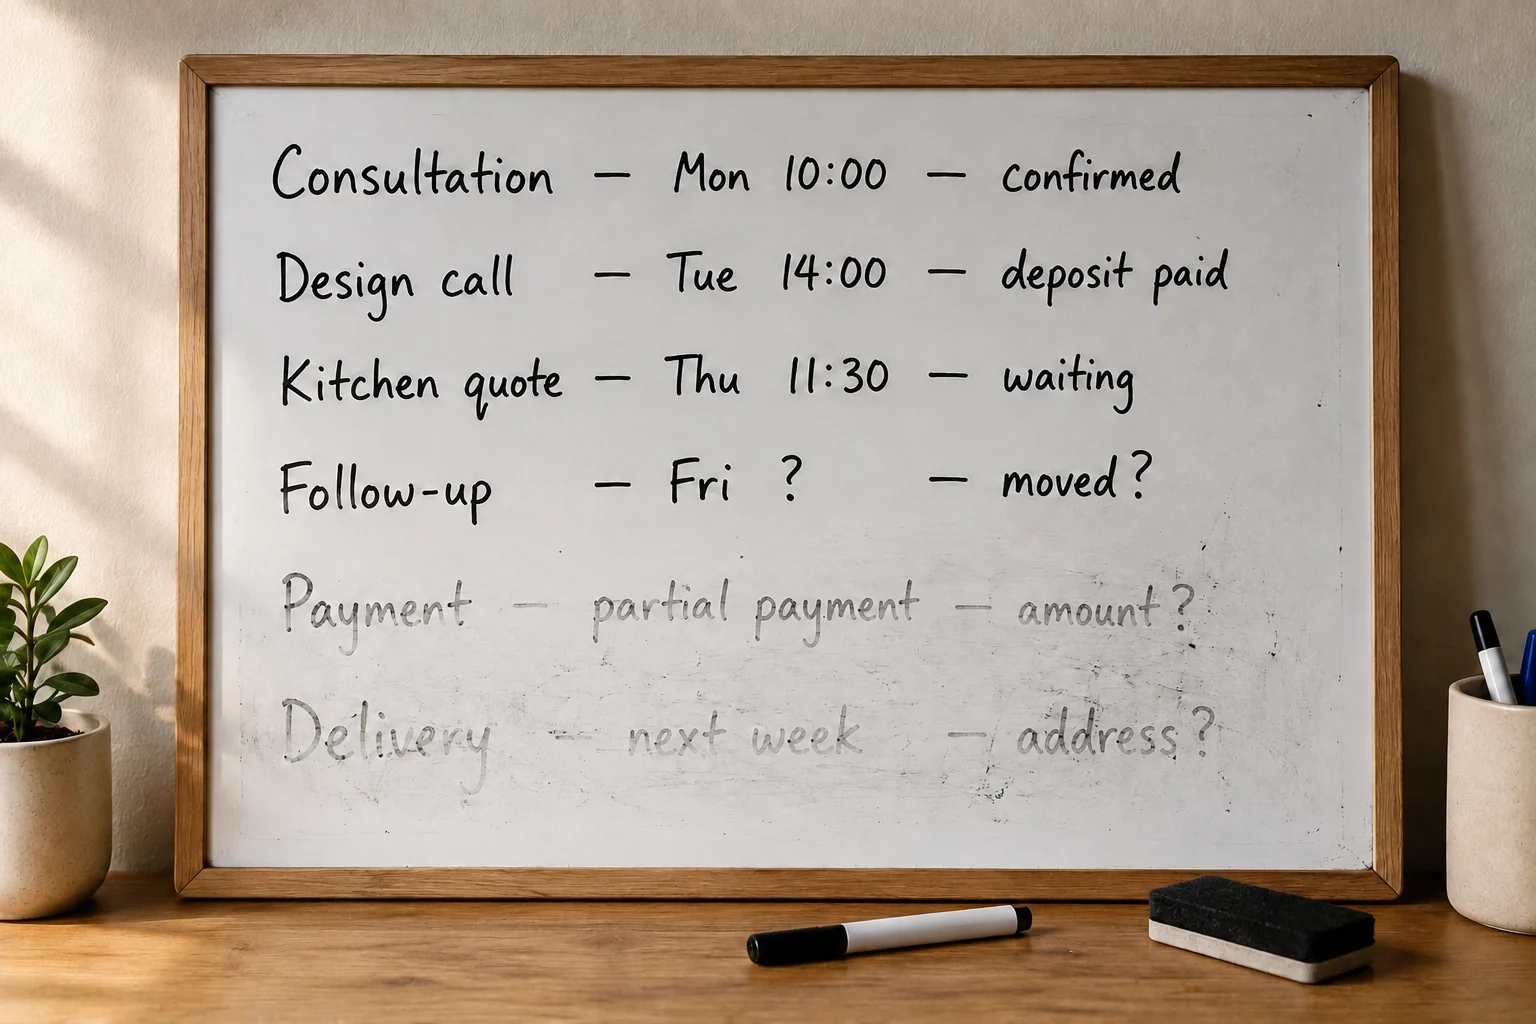 Consultation — Mon 10:00 — confirmed
Design call — Tue 14:00 — deposit paid
Kitchen quote — Thu 11:30 — waiting
Follow-up — Fri ? — moved?
Payment — partial payment — amount?
Delivery — next week — address?